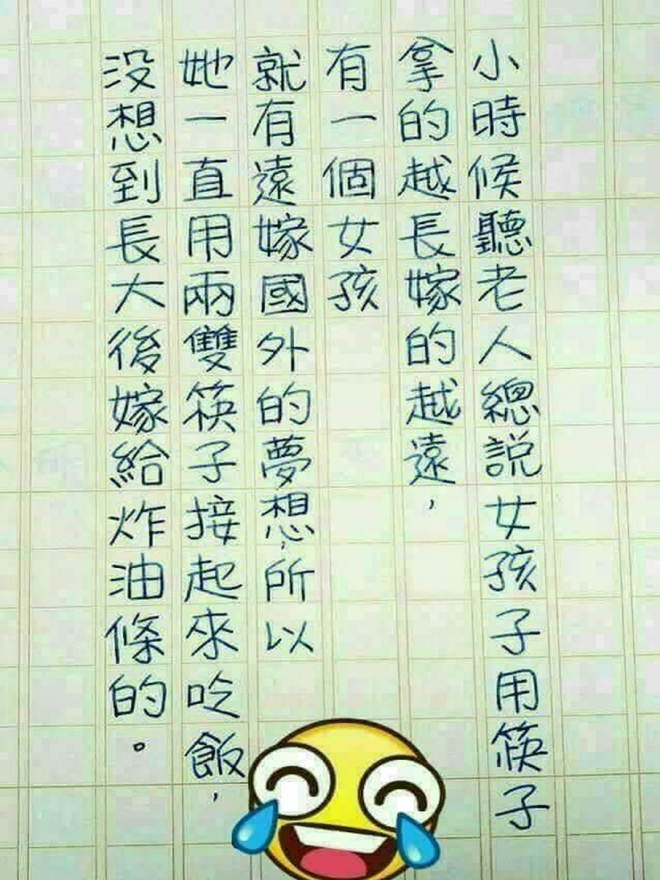 小時候聽老人總說女孩子用筷子
拿的越長嫁的越遠，
有一個女孩
就有遠嫁國外的夢想，所以
她一直用兩雙筷子接起來吃飯，
没想到長大後嫁給炸油條的。